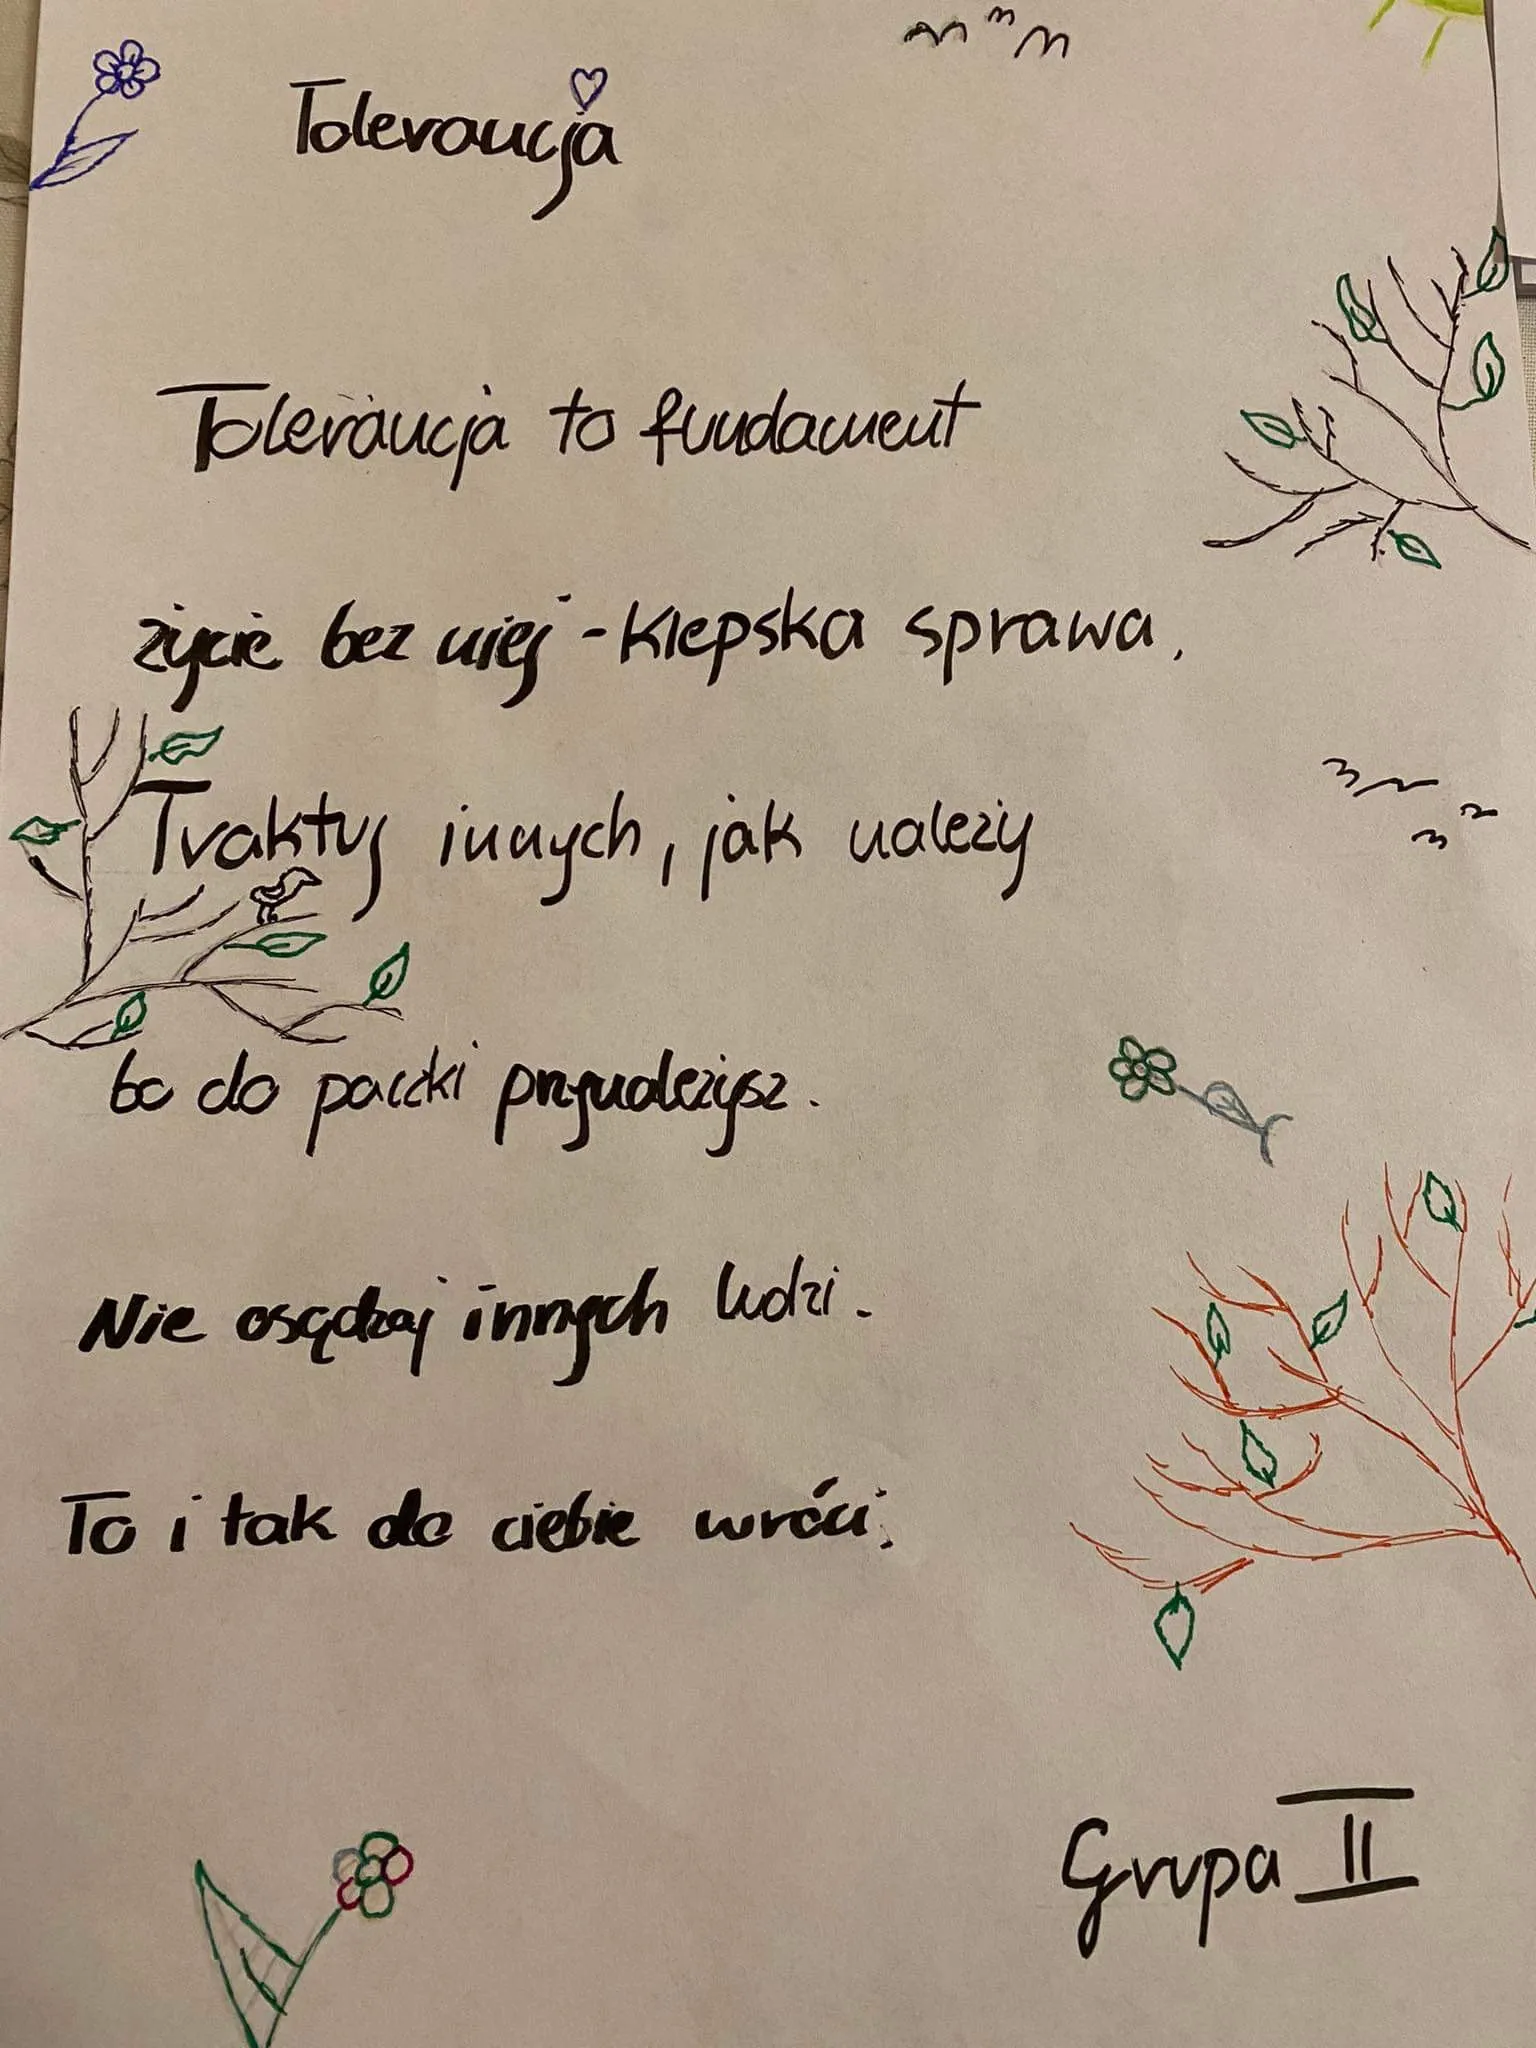 Tolerancja
Tolerancja to fundament
życie bez niej - kiepska sprawa.
Traktuj innych, jak należy
bo do paczki przynależysz.
Nie osądzaj innych ludzi.
To i tak do ciebie wróci.
Grupa II